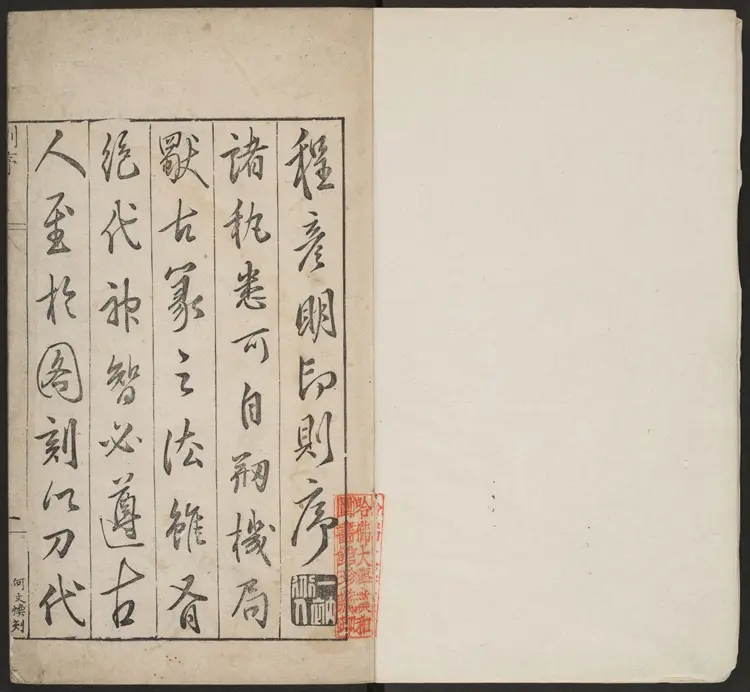 程彥明印則序
諸秇悉可自剏機局
獨古篆之法雖有
絕代神智必遵古
人至於圖刻以刀代
則序
一
何文刻
哈佛大學漢和
圖書館珍藏印